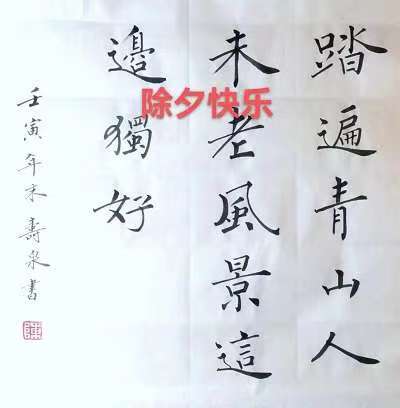 踏遍青山人
未老風景這
邊獨好
壬寅年末壽泉書
陳
除夕快乐